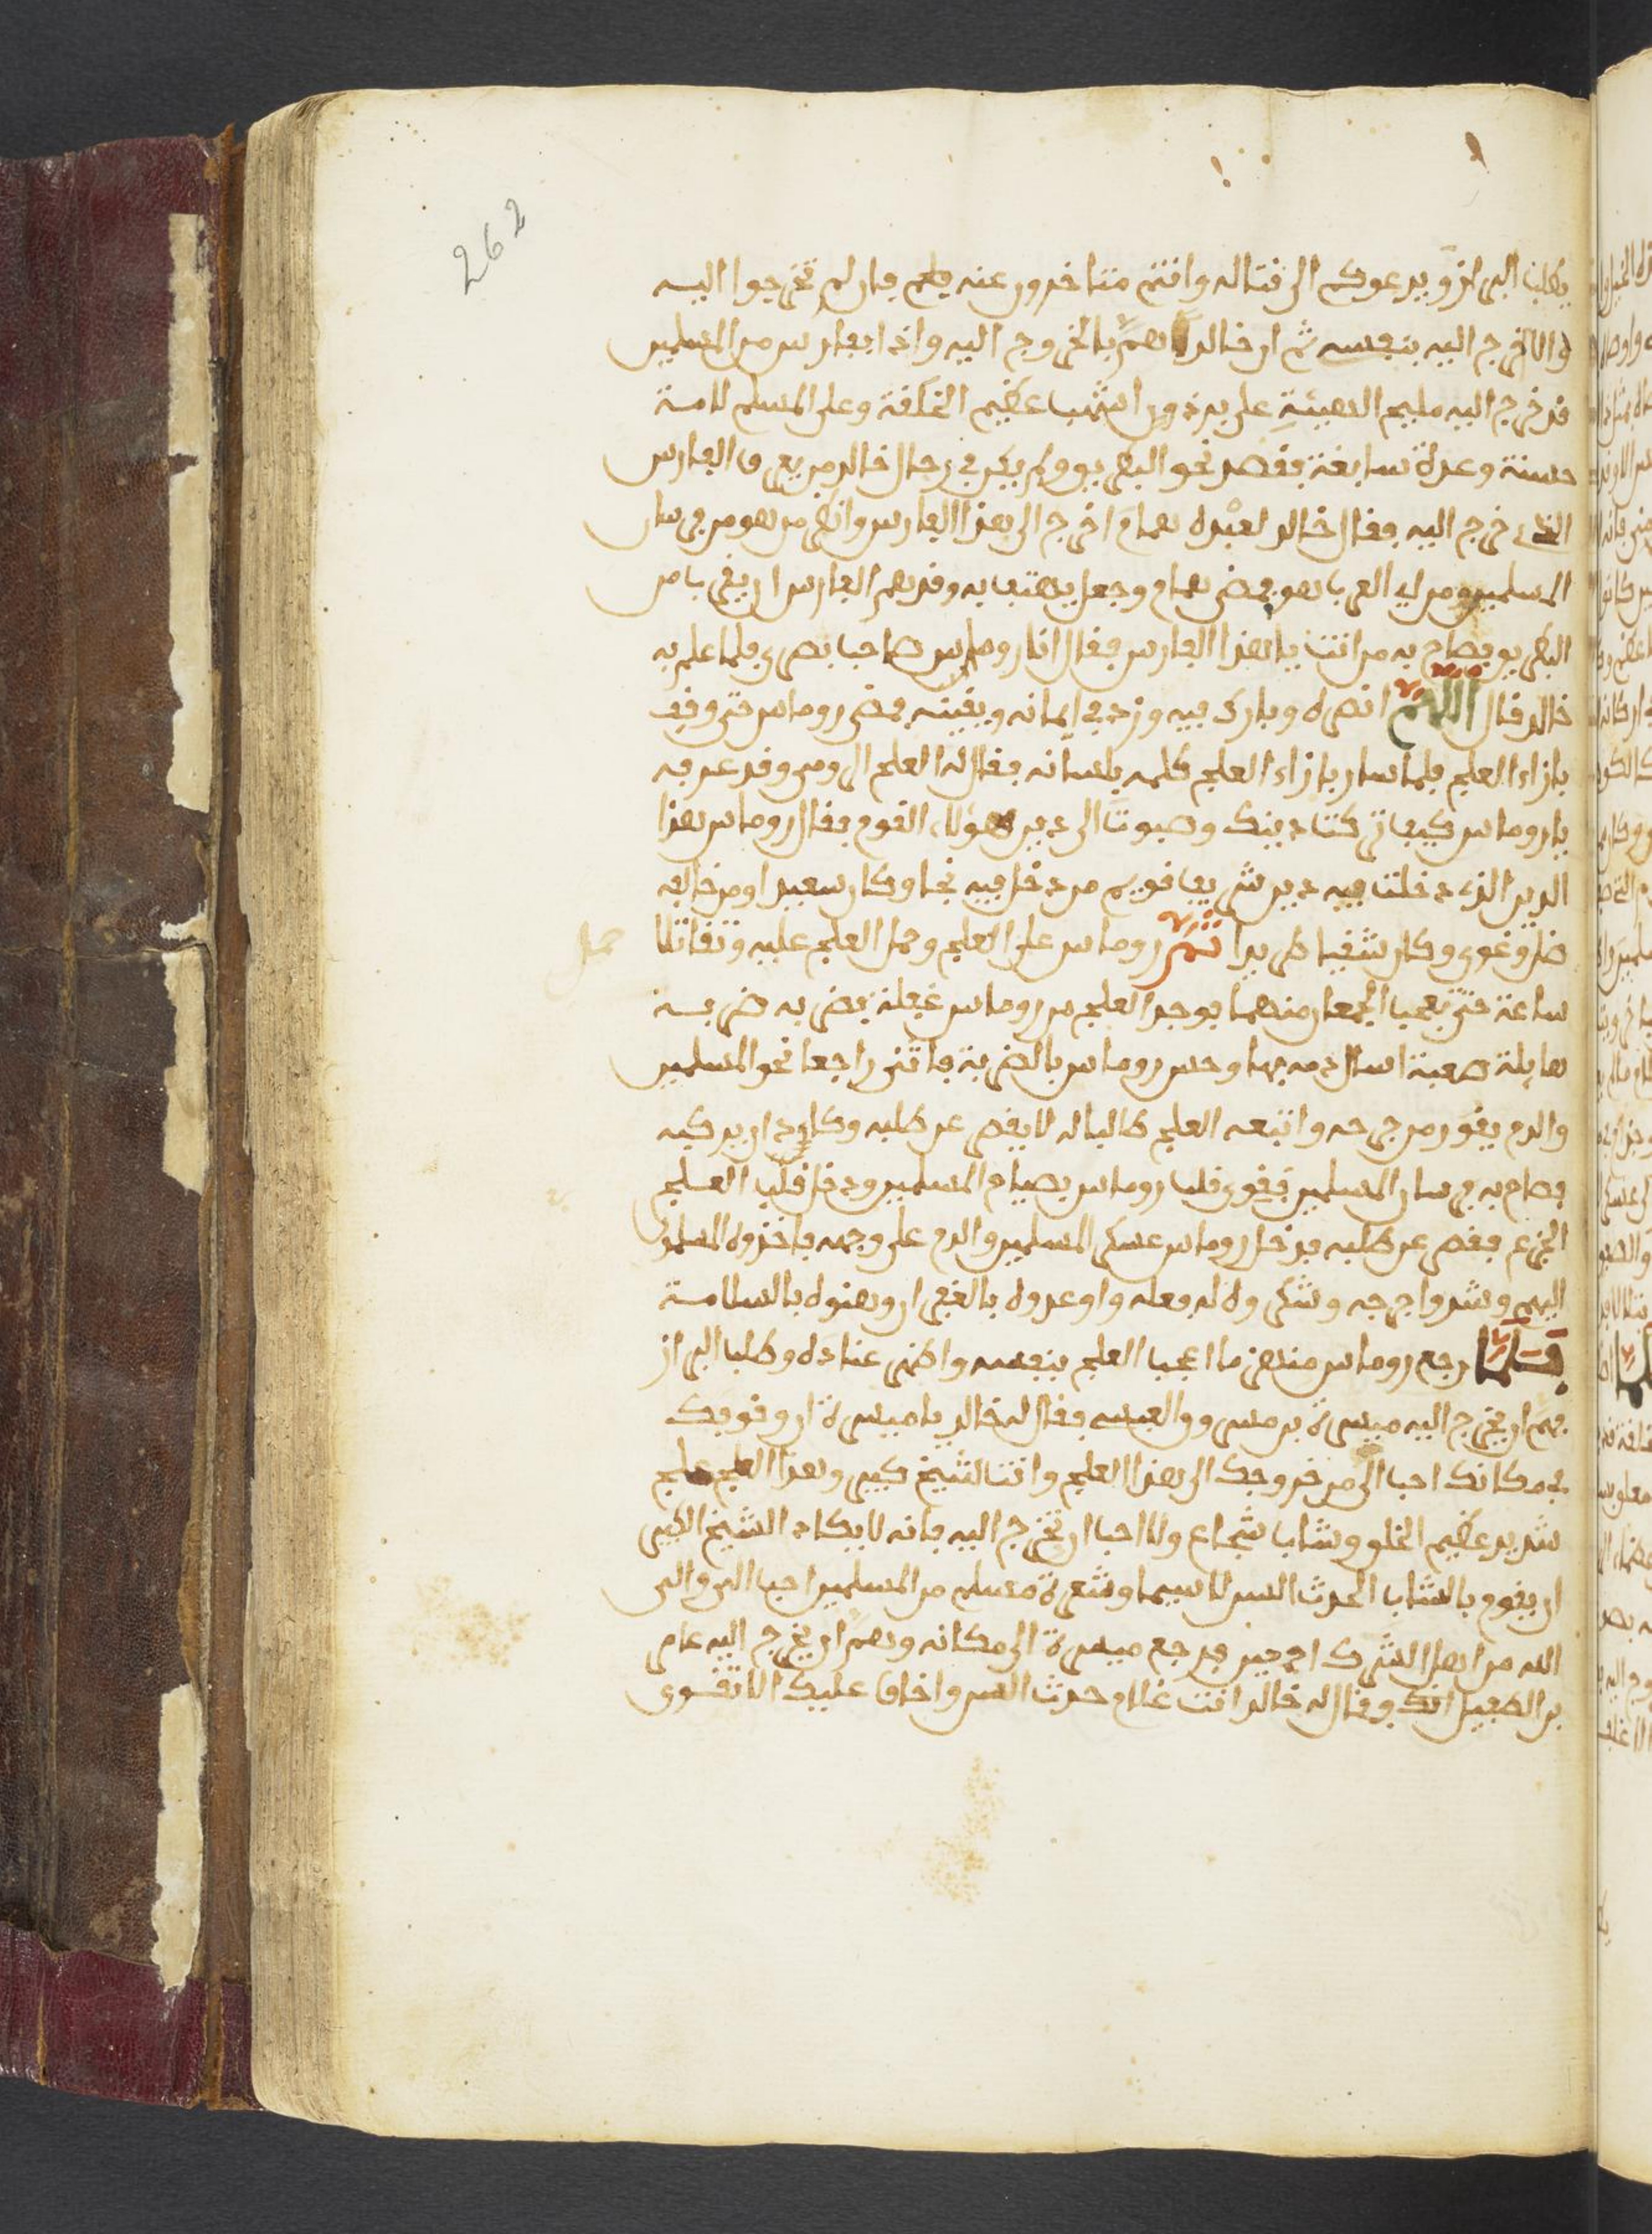 262
يطلب البراز ويدعوكم الى قتاله وانتم متاخرون عنه فان لم تخرجوا اليه
والا خرج اليه بنفسه ثم ان خالد هم بالخروج اليه واذا بفارس من المسلمين
قد خرج اليه مليح الهيئة على برذون اشهب عظيم الخلقة وعلى المسلم لامة
حسنة وعدة سابغة فقصد نحو البطريق ولم يكن في رجال خالد من يعرف الفارس
الذي خرج اليه فقال خالد لعبده همام اخرج الى هذا الفارس وانظر من هو من فرسان
المسلمين ومن اي العرب هو فمضى همام وجعل يهتف به وقد هم الفارس ان يقرب من
البطريق فصاح به من انت يا هذا الفارس فقال انا روماس صاحب بصرى فلما علم به
خالد قال اللهم انصره وبارك فيه وزد في ايمانه ويقينه فمضى روماس حتى وقف
بازاء العلج فلما سار بازاء العلج كلمه بلسانه فقال له العلج الرومي وقد عرفه
ياروماس كيف تركت دينك وصبوت الى دين هؤلاء القوم فقال روماس هذا
الدين الذي دخلت فيه دين شريف قويم من دخل فيه نجا وكان سعيدا ومن خالفه
ضل وغوى وكان شقيا طريدا ثم روماس على العلج وحمل العلج عليه وتقاتلا
حمل
ساعة حتى تعجب الجمعان منهما فوجد العلج من روماس غفلة فضربه ضربة
هايلة صعبة اسال دمه بها وحس روماس بالضربة فانثنى راجعا نحو المسلمين
والدم يفور من جرحه واتبعه العلج طالبا له لا يقصر عن طلبه وكاد ان يدركه
فصاح به فرسان المسلمين فقوى قلب روماس بصياح المسلمين ودخل قلب العلج
الجزع فقصر عن طلبه فدخل روماس عسكر المسلمين والدم على وجهه فاخذوه المسلمون
اليهم وشدوا جرحه وشكروه له فعله واوعدوه بالغفران وهنوه بالسلامة
فلما رجع روماس منهزما اعجب العلج بنفسه واظهر عناده وطلب البراز
فهم ان يخرج اليه ميسرة بن مسروق العبسي فقال له خالد يا ميسرة ان وقوفك
في مكانك احب الي من خروجك الى هذا العلج وانت شيخ كبير وهذا العلج علج
شديد عظيم الخلق وشاب شجاع ولا احب ان تخرج اليه فانه لا يكاد الشيخ الكبير
ان يقوم بالشاب الحدث السن لا سيما وشعرة مسلم من المسلمين احب الي والى
الله من اهل الشرك اجمعين فرجع ميسرة الى مكانه وهم ان يخرج اليه عامر
بن الطفيل وقال له خالد انت غلام حدث السن واخاف عليك الا تقوى